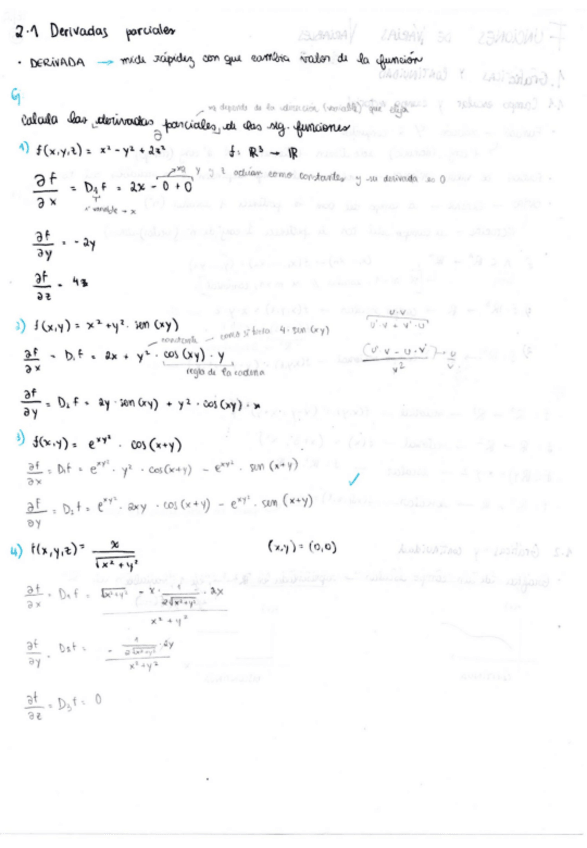 2.1 Derivadas parciales
· DERIVADA → mide rápidez con que cambia valor de la función
no depende de la ubicación (variable) que elija
Calcula las derivadas parciales, de las sig. funciones
∂
1) f(x,y,z) = x² - y² + 2z² f: R³ → R
∂f/∂x = D₁f = 2x - 0 + 0 y z actúan como constantes y su derivada es 0
variable → x
∂f/∂y = -2y
∂f/∂z = 4z
2) f(x,y) = x² + y² · sen(xy)
constante → como si fuera 4·sen(xy)
∂f/∂x = D₁f = 2x + y² · cos(xy) · y
regla de la cadena
u·v
u'v + v'·u
(u'v - u·v')/v² → u/v
∂f/∂y = D₂f = 2y · sen(xy) + y² · cos(xy) · x
3) f(x,y) = e^{xy²} · cos(x+y)
∂f/∂x = D₁f = e^{xy²} · y² · cos(x+y) - e^{xy²} · sen(x+y)
∂f/∂y = D₂f = e^{xy²} · 2xy · cos(x+y) - e^{xy²} · sen(x+y)
4) f(x,y,z) = x/√(x²+y²) (x,y) = (0,0)
∂f/∂x = D₁f = (√(x²+y²) - x · 1/(2√(x²+y²)) · 2x)/(x²+y²)
∂f/∂y = D₂f = (- 1/(2√(x²+y²)) · 2y)/(x²+y²)
∂f/∂z = D₃f = 0